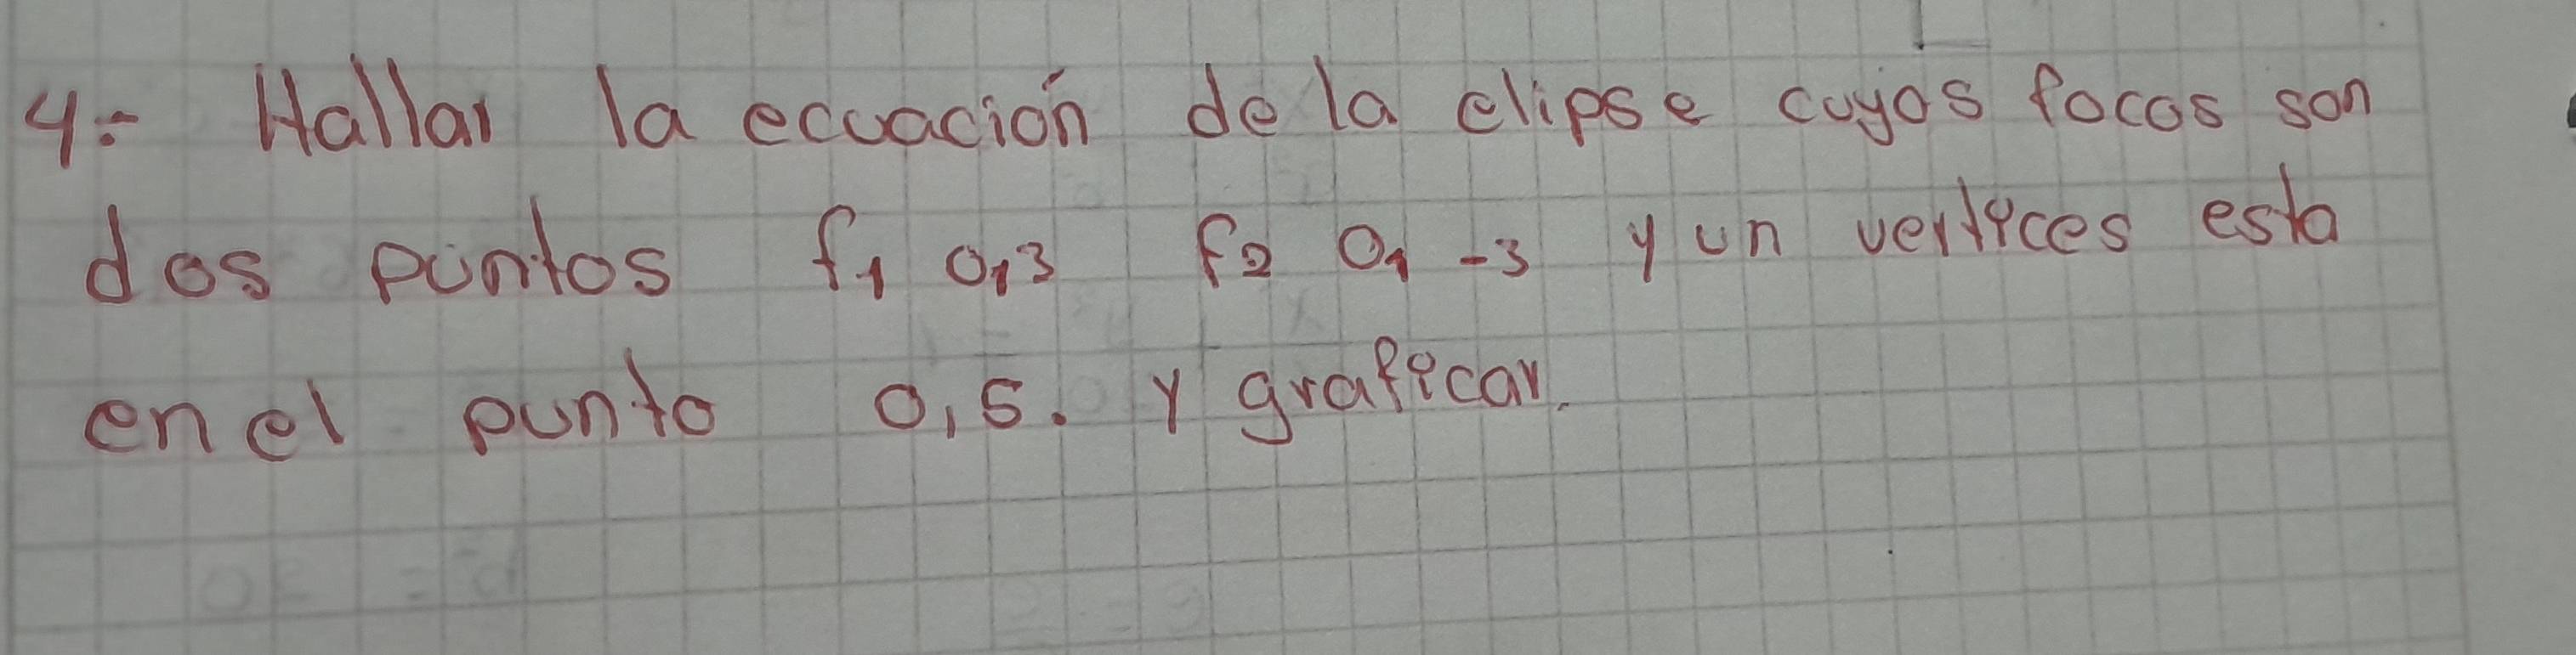 4.- Hallar la ecuación de la elipse cuyos focos son
dos puntos f1 0,3 f2 0, -3 y un vertices esta
en el punto 0,5. Y graficar.